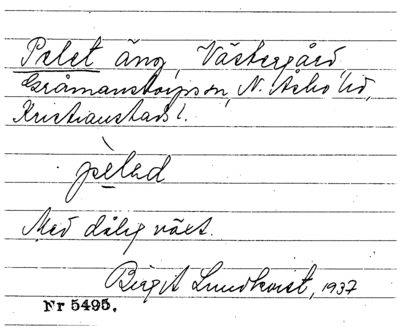 Pelet äng, Västergård,
Gråmanstorps sn, N. Åsbo hd,
Kristianstads l.
pèlad
Med dålig växt.
Birgit Lundkvist, 1937
Nr 5495.